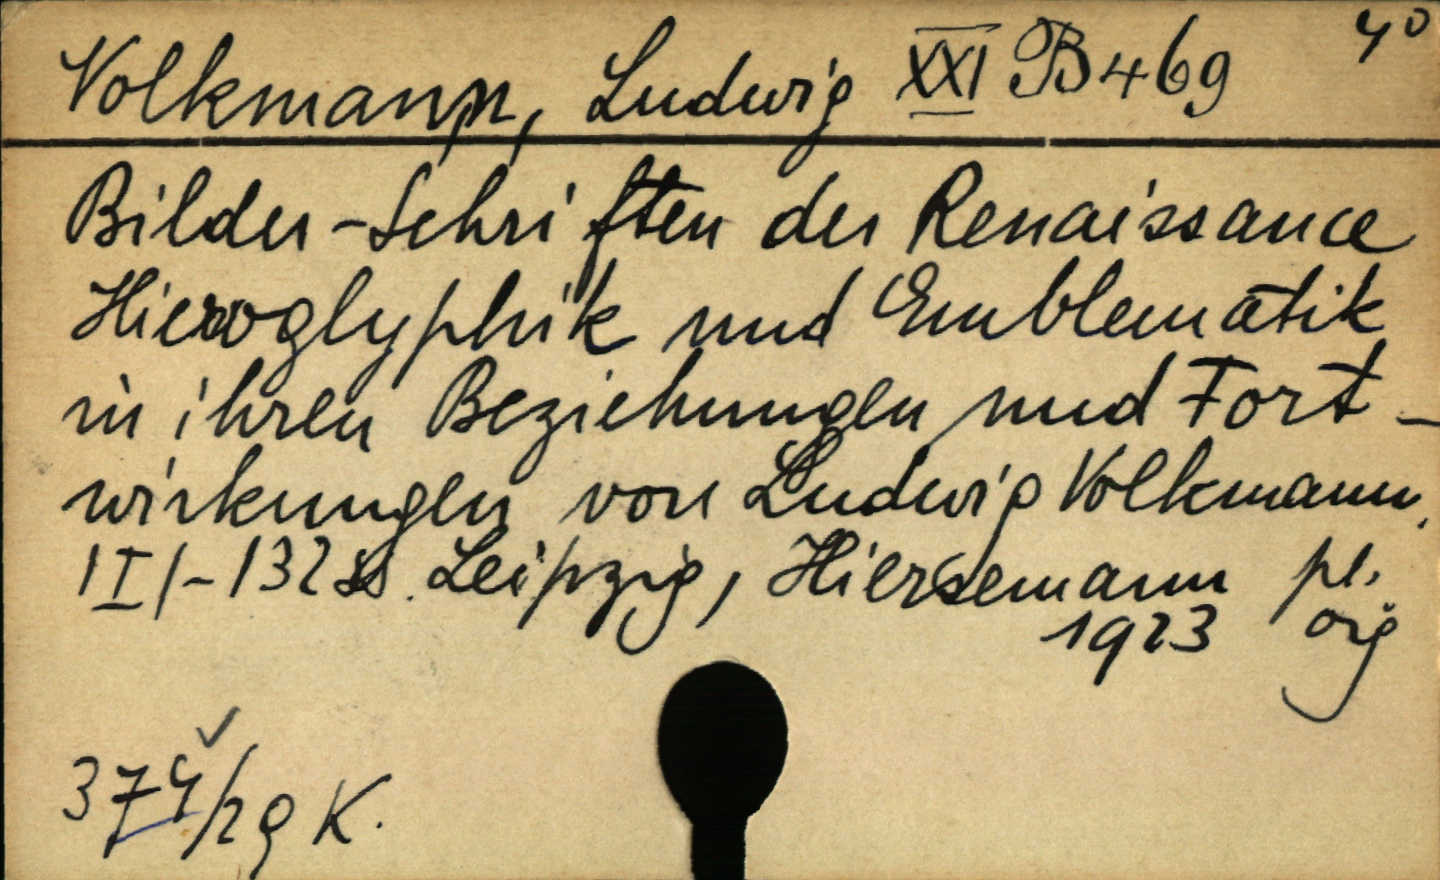 Volkmann, Ludwig XXI B469 4°
Bilder-Schriften der Renaissance
Hieroglyphik und Emblematik
in ihren Beziehungen und Fort-
wirkungen von Ludwig Volkmann.
132 ss. Leipzig, Hiersemann pl.
1923 orig
374/29 K.